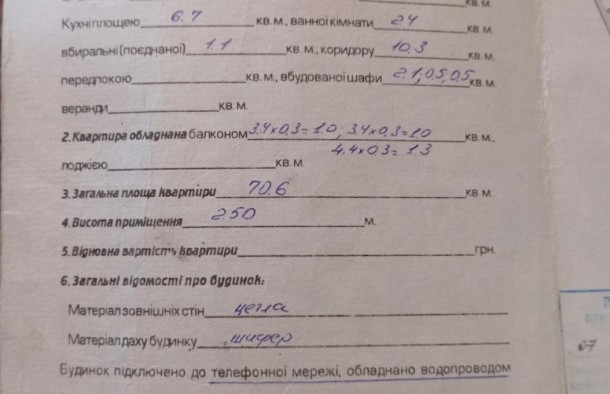 кв. м.
Кухні площею 6.7 кв. м., ванної кімнати 2.4
кв. м.
вбиральні (поєднаної) 1.1 кв. м., коридору 10.3
кв. м.
передпокою кв. м., вбудованої шафи 2.1; 0.5; 0.5 кв. м.
веранди кв. м.
2. Квартира обладнана балконом 3.4х0.3=1.0; 3.4х0.3=1.0 кв. м.,
4.4х0.3=1.3
лоджією кв. м.
3. Загальна площа квартири 70.6 кв. м.
4. Висота приміщення 2.50 м.
5. Відновна вартість квартири грн.
6. Загальні відомості про будинок:
Матеріал зовнішніх стін цегла
Матеріал даху будинку шифер
Будинок підключено до телефонної мережі, обладнано водопроводом
07